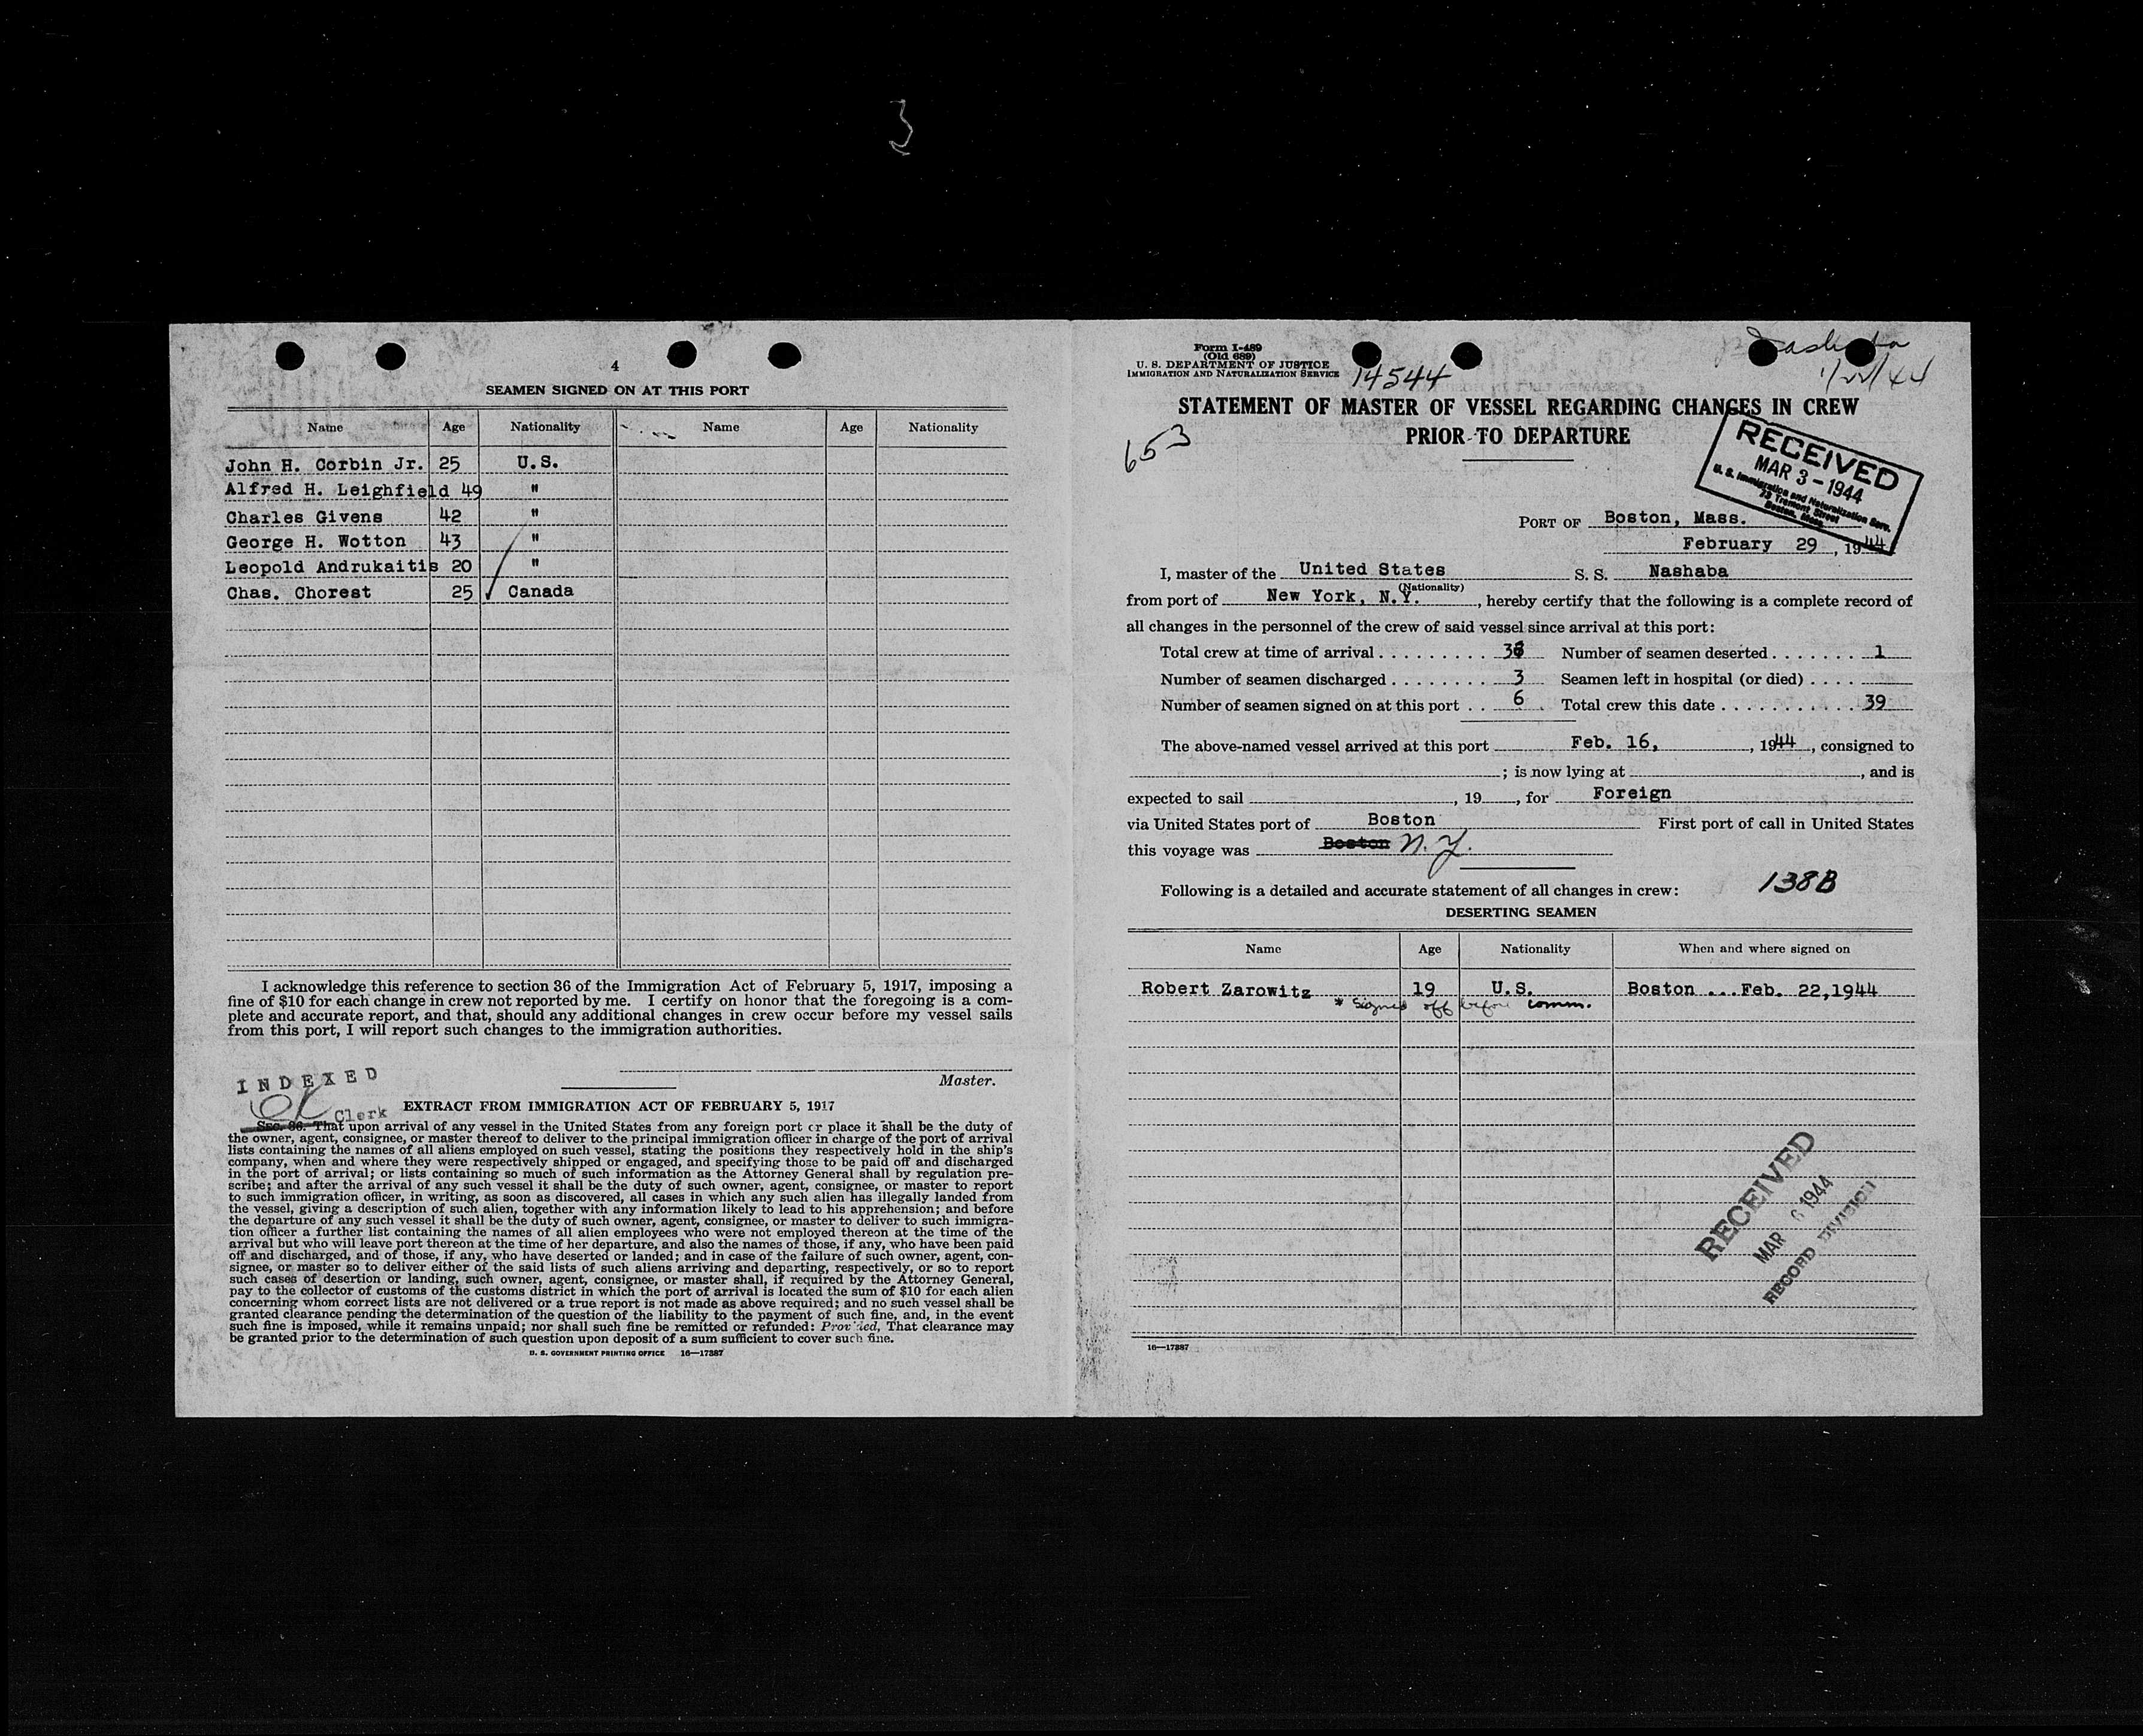 3
4
SEAMEN SIGNED ON AT THIS PORT
Name Age Nationality Name Age Nationality
John H. Corbin Jr. 25 U.S.
Alfred H. Leighfield 49 "
Charles Givens 42 "
George H. Wotton 43 "
Leopold Andrukaitis 20 "
Chas. Chorest 25 ✓ Canada
I acknowledge this reference to section 36 of the Immigration Act of February 5, 1917, imposing a
fine of $10 for each change in crew not reported by me. I certify on honor that the foregoing is a com-
plete and accurate report, and that, should any additional changes in crew occur before my vessel sails
from this port, I will report such changes to the immigration authorities.
Master.
INDEXED
Clerk
EXTRACT FROM IMMIGRATION ACT OF FEBRUARY 5, 1917
SEC. 36. That upon arrival of any vessel in the United States from any foreign port or place it shall be the duty of
the owner, agent, consignee, or master thereof to deliver to the principal immigration officer in charge of the port of arrival
lists containing the names of all aliens employed on such vessel, stating the positions they respectively hold in the ship's
company, when and where they were respectively shipped or engaged, and specifying those to be paid off and discharged
in the port of arrival; or lists containing so much of such information as the Attorney General shall by regulation pre-
scribe; and after the arrival of any such vessel it shall be the duty of such owner, agent, consignee, or master to report
to such immigration officer, in writing, as soon as discovered, all cases in which any such alien has illegally landed from
the vessel, giving a description of such alien, together with any information likely to lead to his apprehension; and before
the departure of any such vessel it shall be the duty of such owner, agent, consignee, or master to deliver to such immigra-
tion officer a further list containing the names of all alien employees who were not employed thereon at the time of the
arrival but who will leave port thereon at the time of her departure, and also the names of those, if any, who have been paid
off and discharged, and of those, if any, who have deserted or landed; and in case of the failure of such owner, agent, con-
signee, or master so to deliver either of the said lists of such aliens arriving and departing, respectively, or so to report
such cases of desertion or landing, such owner, agent, consignee, or master shall, if required by the Attorney General,
pay to the collector of customs of the customs district in which the port of arrival is located the sum of $10 for each alien
concerning whom correct lists are not delivered or a true report is not made as above required; and no such vessel shall be
granted clearance pending the determination of the question of the liability to the payment of such fine, and, in the event
such fine is imposed, while it remains unpaid; nor shall such fine be remitted or refunded: Provided, That clearance may
be granted prior to the determination of such question upon deposit of a sum sufficient to cover such fine.
U. S. GOVERNMENT PRINTING OFFICE 16—17387
Form I-489
(Old 689)
U. S. DEPARTMENT OF JUSTICE
IMMIGRATION AND NATURALIZATION SERVICE
14544
STATEMENT OF MASTER OF VESSEL REGARDING CHANGES IN CREW
PRIOR TO DEPARTURE
653
RECEIVED
MAR 3 - 1944
U. S. Immigration and Naturalization Serv.
73 Tremont Street
Boston, Mass.
PORT OF Boston, Mass.
February 29, 1944
I, master of the United States S. S. Nashaba
(Nationality)
from port of New York, N.Y., hereby certify that the following is a complete record of
all changes in the personnel of the crew of said vessel since arrival at this port:
Total crew at time of arrival . . . . . . . . . . Number of seamen deserted . . . . . . . 1
Number of seamen discharged . . . . . . . . 3 Seamen left in hospital (or died) . . . .
Number of seamen signed on at this port . . 6 Total crew this date . . . . . . . . . . . 39
The above-named vessel arrived at this port Feb. 16, , 1944, consigned to
; is now lying at , and is
expected to sail , 19 , for Foreign
via United States port of Boston First port of call in United States
this voyage was Boston N.Y.
Following is a detailed and accurate statement of all changes in crew: 138B
DESERTING SEAMEN
Name Age Nationality When and where signed on
Robert Zarowitz 19 U.S. Boston ...Feb. 22,1944
* Signed off before comm.
RECEIVED
MAR 6 1944
RECORD DIVISION
16—17387